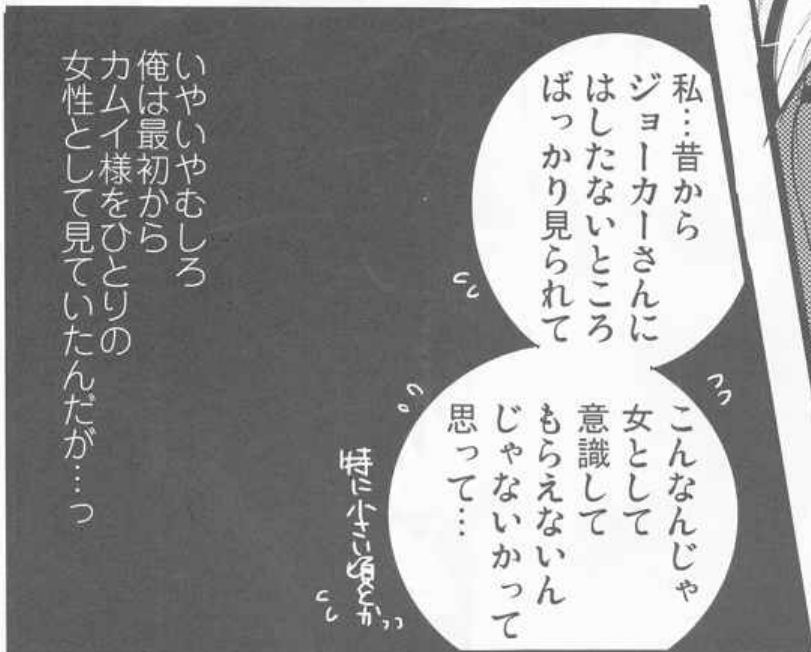 私…昔から
ジョーカーさんに
はしたないところ
ばっかり見られて
こんなんじゃ
女として
意識して
もらえないん
じゃないかって
思って…
特に小さい頃とか…
いやいやむしろ
俺は最初から
カムイ様をひとりの
女性として見ていたんだが…っ